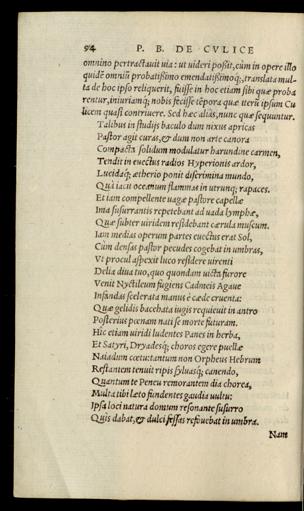 94 P. B. DE CVLICE
omnino pertractauit uia: ut uideri poßit, cùm in opere illo
quidē omniū probatißimo emendatißimoq́;, translata mul-
ta de hoc ipso reliquerit, fuisse in hoc etiam sibi quæ proba
rentur, iniuriamq́; nobis fecisse tēpora quæ iterū ipsum Cu
licem quasi contriuere. Sed hæc aliàs, nunc quæ sequuntur.
Talibus in studijs baculo dum nixus apricas
Pastor agit curas, & dum non arte canora
Compacta solidum modulatur harundine carmen,
Tendit in euectus radios Hyperionis ardor,
Lucidaq́; ætherio ponit discrimina mundo,
Quà iacit oceanum flammas in utrunq; rapaces.
Et iam compellente uagæ pastore capellæ
Ima susurrantis repetebant ad uada lymphæ,
Quæ subter uiridem residebant cærula muscum.
Iam medias operum partes euectus erat Sol,
Cùm densas pastor pecudes cogebat in umbras,
Vt procul aspexit luco residere uirenti
Delia diua tuo, quo quondam uicta furore
Venit Nyctileum fugiens Cadmeis Agaue
Infandas scelerata manus è cæde cruenta:
Quæ gelidis bacchata iugis requieuit in antro
Posterius pœnam nati se morte futuram.
Hic etiam uiridi ludentes Panes in herba,
Et Satyri, Dryadesq́; choros egere puellæ
Naiadum cœtu: tantum non Orpheus Hebrum
Restantem tenuit ripis syluasq́; canendo,
Quantum te Peneu remorantem dia chorea,
Multa tibi læto fundentes gaudia uultu:
Ipsa loci natura domum resonante susurro
Quis dabat, & dulci fessas refouebat in umbra.
Nam